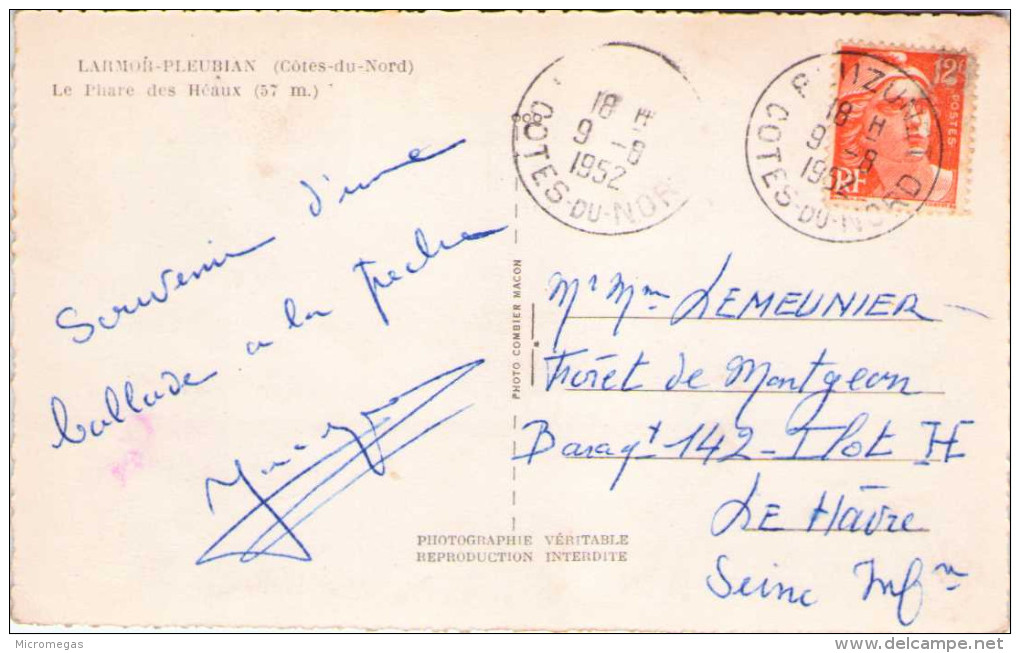 LARMOR-PLEUBIAN (Côtes-du-Nord)
Le Phare des Héaux (57 m.)
Souvenir d'une
ballade a la peche
PHOTO COMBIER MACON
PHOTOGRAPHIE VÉRITABLE
REPRODUCTION INTERDITE
18 H
9 -8
1952
COTES-DU-NOR
18 H
9 -8
1952
COTES-DU-NORD
12F
POSTES
RF
Mr Mme LEMEUNIER
Forêt de Montgeon
Baraqt 142 - Ilot H
LE Hâvre
Seine Infre
Micromegas
www.delcampe.net